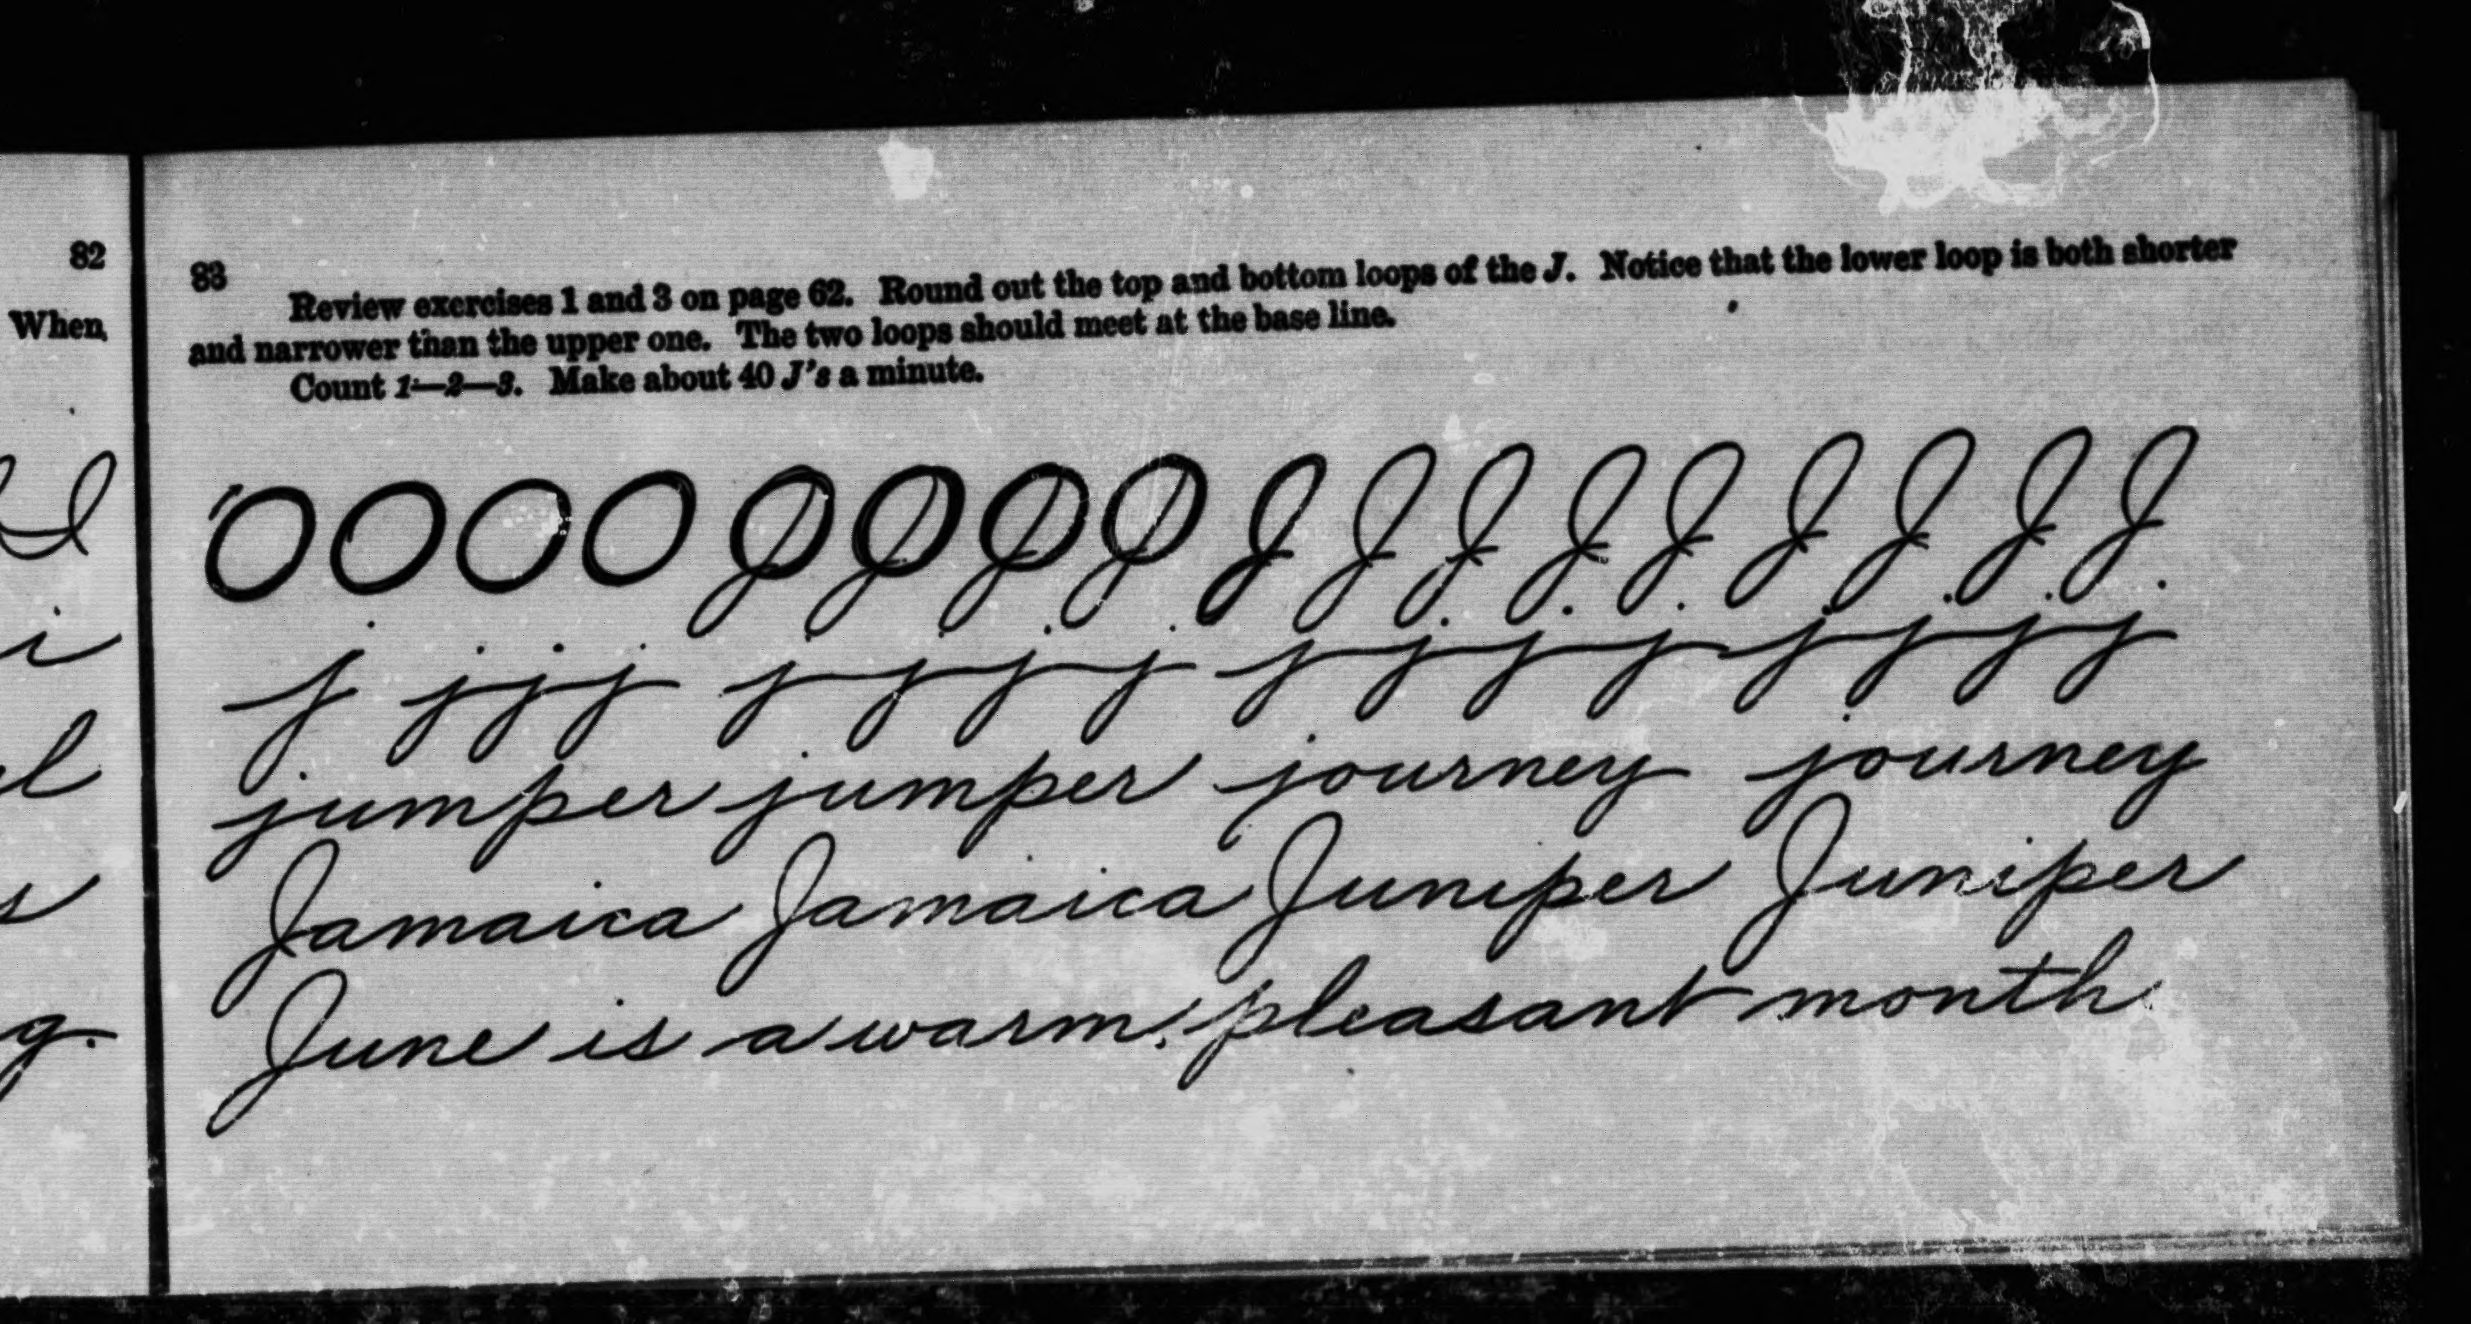 82
When
l
i
l
s
g.
83
Review exercises 1 and 3 on page 62. Round out the top and bottom loops of the J. Notice that the lower loop is both shorter
and narrower than the upper one. The two loops should meet at the base line.
Count 1—2—3. Make about 40 J's a minute.
O O O O J J J J J J J J J J J J J
j j j j j j j j j j j j j j j j
jumper jumper journey journey
Jamaica Jamaica Juniper Juniper
June is a warm, pleasant month